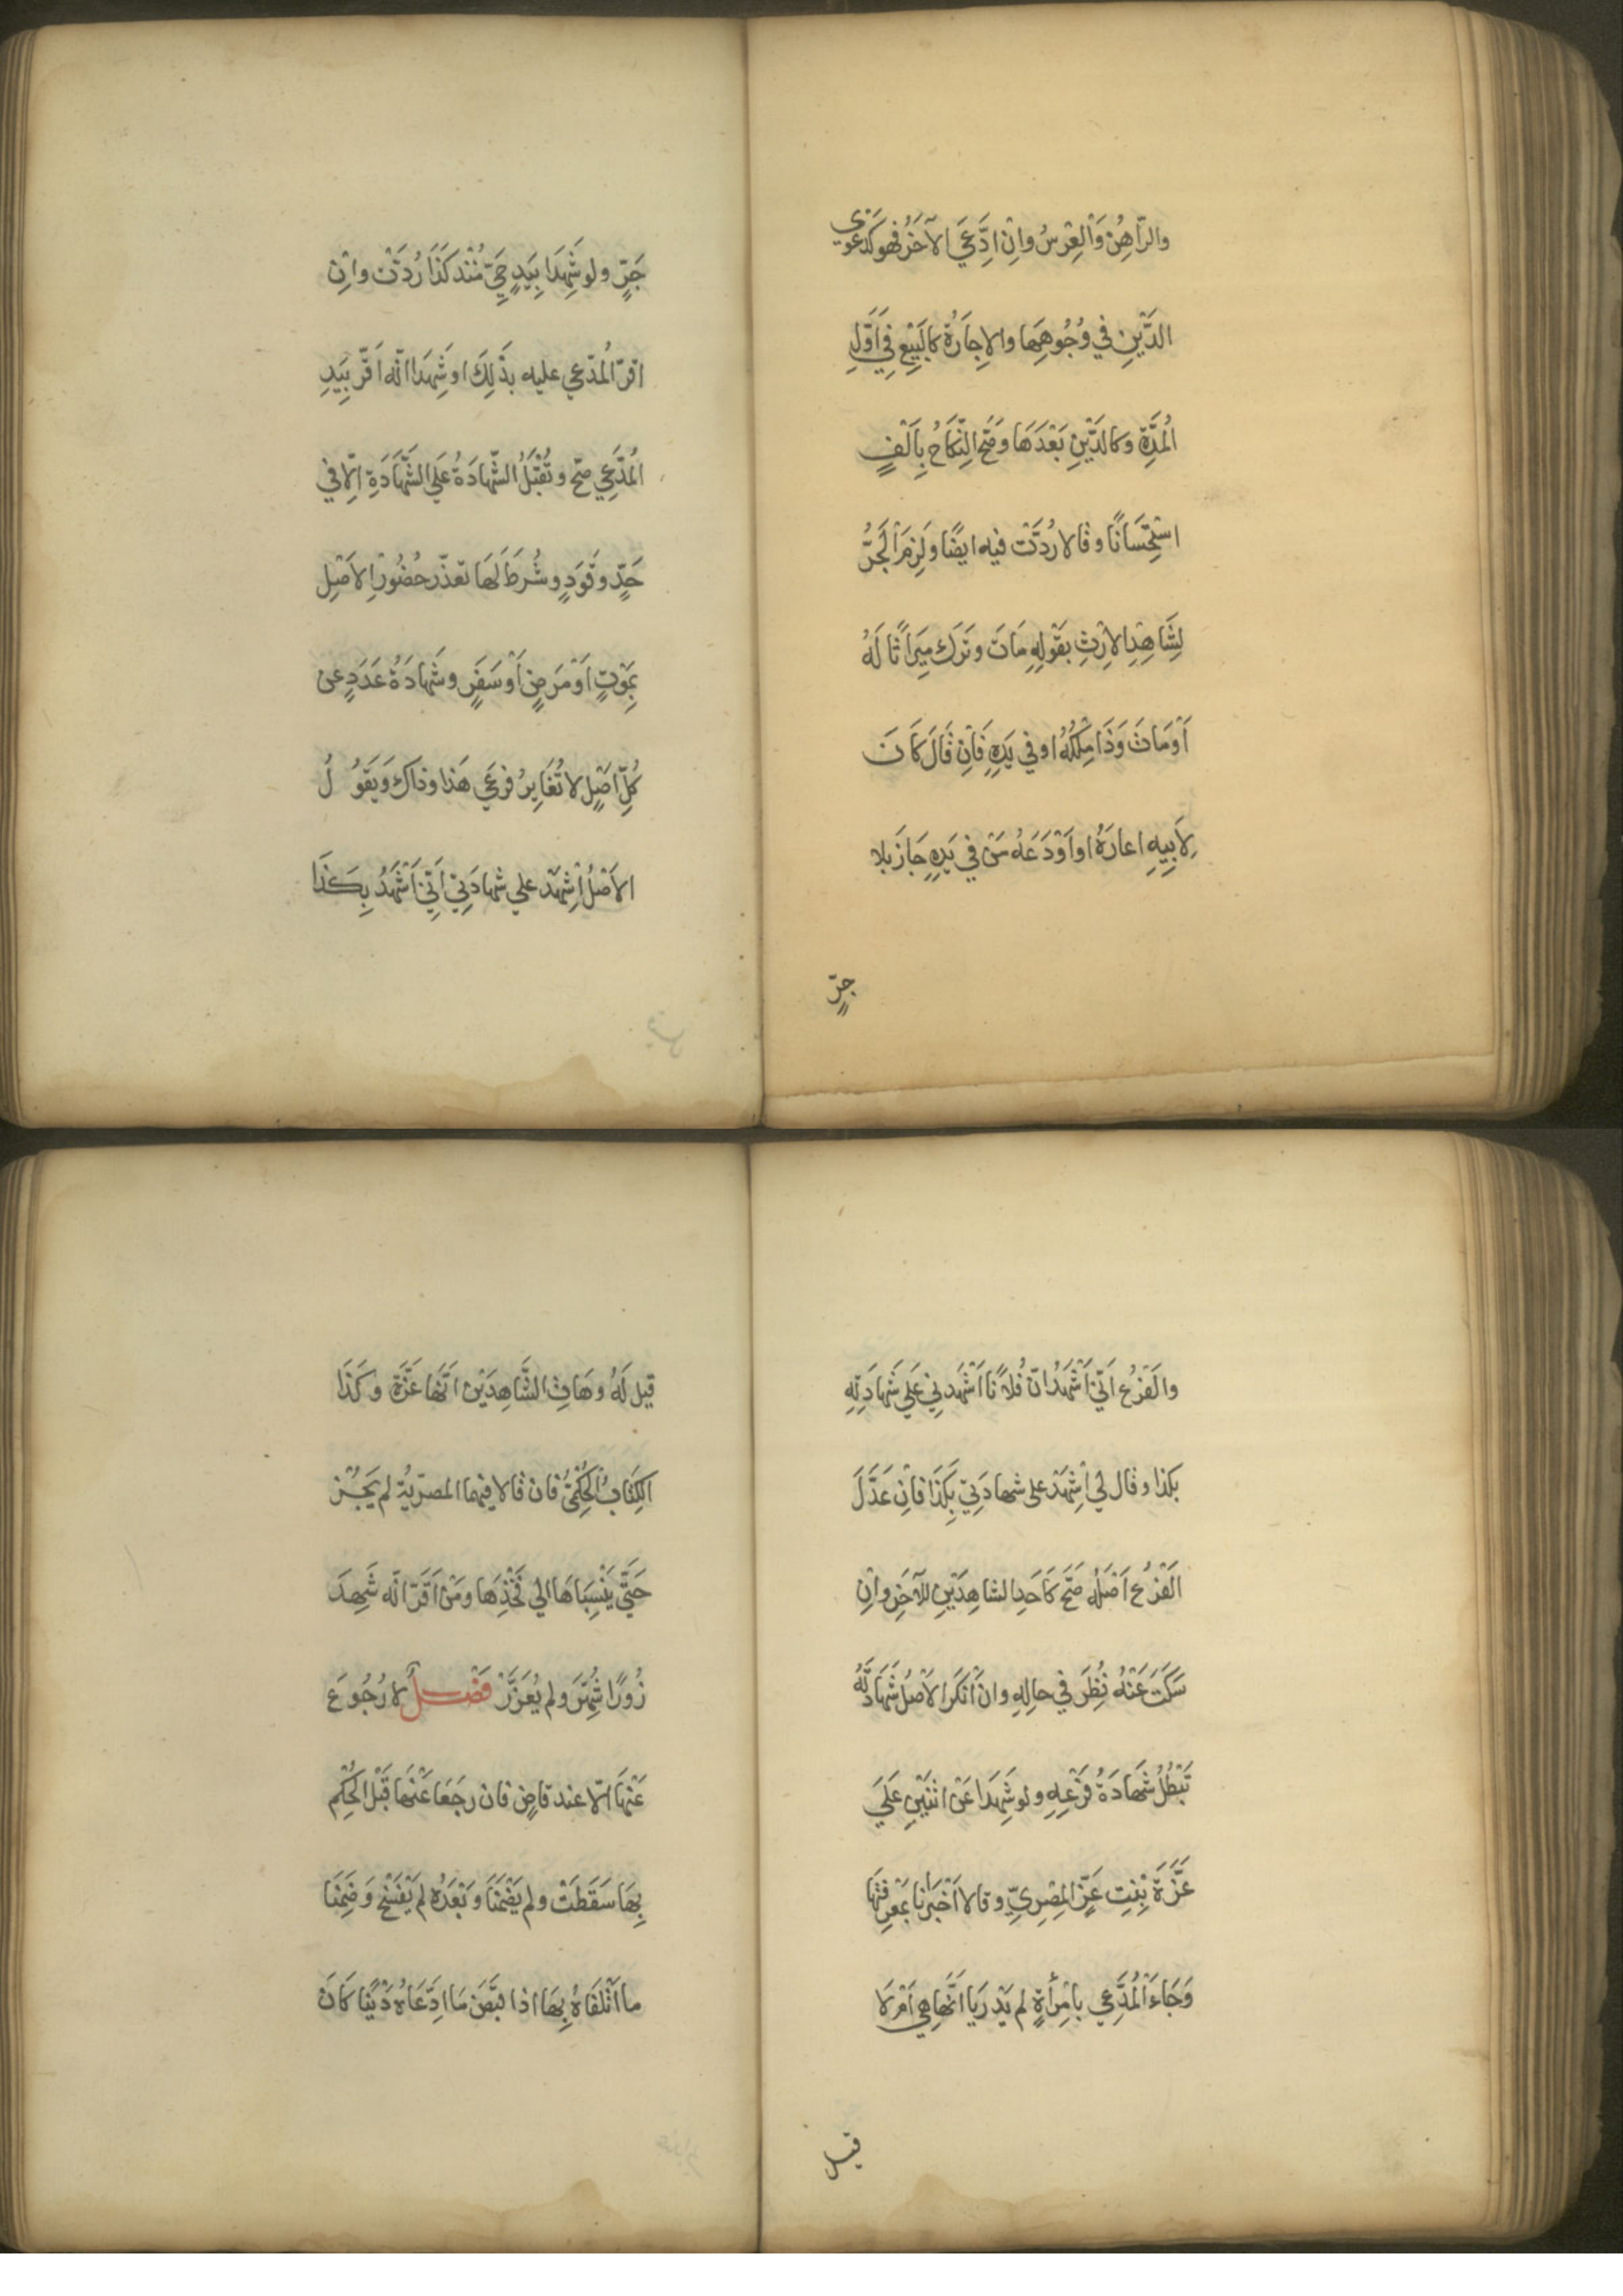 والرَّاهِنُ وَالْعِرْسُ وانِ ادَّعَيَ الآخَرُ فهو كَدَعْوَي
الدَّيْنِ فِي وُجُوهِهَا والاِجَارَةُ كالْبَيْعِ فِي اَوَّلِ
المُدَّةِ وكالدَّيْنِ بَعْدَهَا وَصَحَّ النِّكَاحُ بِاَلْفٍ
اسْتِحْسَانًا وقالا رُدَّتْ فيه ايضًا ولَزِمَ الْجَرُّ
لِشَاهِدِ الاِرْثِ بقَوْلِهِ مَاتَ وتَرَكَ مِيرَاثًا لَهُ
اَوْ مَاتَ وَذَا مِلْكُهُ او في يَدِهِ فَاِنْ قَالَ كَانَ
لِاَبِيهِ اعارَهُ او اَوْدَعَهُ مَنْ في يَدِهِ جَازَ بلا
جَرٍّ
جَرٍّ ولو شَهِدَا بِيَدِ حَيٍّ مُنْذ كَذَا رُدَّتْ واِنْ
اقرّ المُدّعي عليه بذَلِكَ او شَهِدَا انّه اَقَرَّ بِيَدِ
المُدَّعِي صَحّ وتُقْبَلُ الشّهادَةُ عَلَي الشَّهَادَةِ اِلّا في
حَدٍّ وقَوَدٍ وشُرِطَ لَهَا تعذّر حُضُورِ الاَصْلِ
بِمَوْتٍ اَوْ مَرَضٍ اَوْ سَفَرٍ وشَهادَةُ عَدَدٍ عن
كُلِّ اَصْلٍ لا تُغَايِرُ فرْعَيْ هَذا وذاكَ وَيَقُولُ
الاَصْلُ اُشْهِدْ علي شهادَتِي اَنِّي اَشْهَدُ بِكَذَا
والفَرْعُ اَنّي اَشْهَدُ انّ فُلانًا اَشْهَدني عَلَي شَهادَتِهِ
بكذا وقال لي اُشْهِدْ علي شهادَتِي بِكَذَا فاِنْ عَدَّلَ
الفَرْعُ اَصْلَهُ صَحَّ كاَحَدِ الشاهِدَيْنِ للآخَرِ واِنْ
سَكَتَ عَنْهُ نُظِرَ في حالِهِ وان اَنْكَرَ الاَصْلُ شَهَادَتَهُ
تَبْطُلُ شَهادَةُ فَرْعِهِ ولو شَهِدَا عَنْ اثْنَيْنِ عَلَيَ
عَزَّةَ بِنْتِ عَزٍّ المِصْرِيِّ وقالا اَخْبَرَانا بمَعْرِفَتِهَا
وَجَاءَ الْمُدَّعِي بامْرأَةٍ لم يَدْرِيَا اَنَّهَا هِي اَمْ لا
قيل
قيل لَهُ وهَاتِ الشَّاهِدَيْنِ انّهَا عَزَّةُ وكَذَا
الكِتَابُ الْحُكْمِيُّ فان قالا فِيهِمَا المصْرِيّةُ لم يَجُزْ
حَتَّي يَنْسِبَاهَا الي فَخْذِهَا ومَنْ اَقَرَّ انّه شَهِدَ
زُورًا شُهِّرَ ولم يُعَزَّرْ فَصْلٌ لا رُجُوعَ
عَنْهَا اِلّا عند قاضٍ فان رجَعَا عَنْهَا قَبْلَ الحُكْمِ
بِهَا سَقَطَتْ ولم يَضْمَنَا وَبَعْدَهُ لم يُفْسَخْ وَضَمِنَا
ما اَتْلَفَاهُ بِهَا اذا قبَضَ مَا ادّعَاهُ دَيْنًا كَانَ